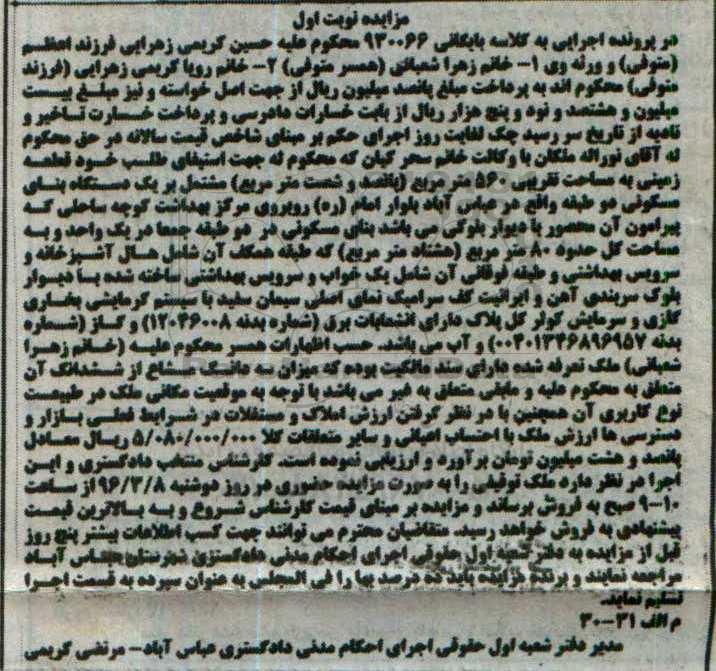 مزایده نوبت اول
در پرونده اجرایی به کلاسه بایگانی ۹۳۰۰۶۶ محکوم علیه حسین کریمی زهرایی فرزند اعظم
(متوفی) و ورثه وی ۱- خانم زهرا شعبانی (همسر متوفی) ۲- خانم رویا کریمی زهرایی (فرزند
متوفی) محکوم اند به پرداخت مبلغ پانصد میلیون ریال از جهت اصل خواسته و نیز مبلغ بیست
میلیون و هشتصد و نود و پنج هزار ریال از بابت خسارات دادرسی و پرداخت خسارت تاخیر و
تادیه از تاریخ سر رسید چک لغایت روز اجرای حکم بر مبنای شاخص قیمت سالانه در حق محکوم
له آقای نوراله ملکان با وکالت خانم سحر کیان که محکوم له جهت استیفای طلب خود قطعه
زمینی به مساحت تقریبی ۵۶۰ متر مربع (پانصد و شصت متر مربع) مشتمل بر یک دستگاه بنای
مسکونی دو طبقه واقع در عباس آباد بلوار امام (ره) روبروی مرکز بهداشت کوچه ساحلی که
پیرامون آن محصور با دیوار بلوکی می باشد بنای مسکونی در دو طبقه جمعا در یک واحد و به
مساحت کل حدود ۸۰ متر مربع (هشتاد متر مربع) که طبقه همکف آن شامل هال آشپزخانه و
سرویس بهداشتی و طبقه فوقانی آن شامل یک خواب و سرویس بهداشتی ساخته شده با دیوار
بلوک سربندی آهن و ایرانیت کف سرامیک نمای اصلی سیمان سفید با سیستم گرمایشی بخاری
گازی و سرمایش کولر کل پلاک دارای انشعابات برق (شماره بدنه ۱۲۰۴۶۰۰۸) و گاز (شماره
بدنه ۰۰۴۰۱۳۴۶۸۹۶۹۵۷) و آب می باشد. حسب اظهارات همسر محکوم علیه (خانم زهرا
شعبانی) ملک تعرفه شده دارای سند مالکیت بوده که میزان سه دانگ مشاع از ششدانگ آن
متعلق به محکوم علیه و مابقی متعلق به غیر می باشد با توجه به موقعیت مکانی ملک در طبیعت
نوع کاربری آن همچنین با در نظر گرفتن ارزش املاک و مستغلات در شرایط فعلی بازار و
دسترسی ها ارزش ملک با احتساب اعیانی و سایر متعلقات کلا ۵/۰۸۰/۰۰۰/۰۰۰ ریال معادل
پانصد و هشت میلیون تومان برآورد و ارزیابی نموده است. کارشناس منتخب دادگستری و این
اجرا در نظر دارد ملک توقیفی را به صورت مزایده حضوری در روز دوشنبه ۹۶/۳/۸ از ساعت
۹-۱۰ صبح به فروش برساند و مزایده بر مبنای قیمت کارشناس شروع و به بالاترین قیمت
پیشنهادی به فروش خواهد رسید. متقاضیان محترم می توانند جهت کسب اطلاعات بیشتر پنج روز
قبل از مزایده به دفتر شعبه اول حقوقی اجرای احکام مدنی دادگستری شهرستان عباس آباد
مراجعه نمایند و برنده مزایده باید ده درصد بها را فی المجلس به عنوان سپرده به قسمت اجرا
تسلیم نماید.
م الف ۳۱-۳۰
مدیر دفتر شعبه اول حقوقی اجرای احکام مدنی دادگستری عباس آباد- مرتضی کریمی